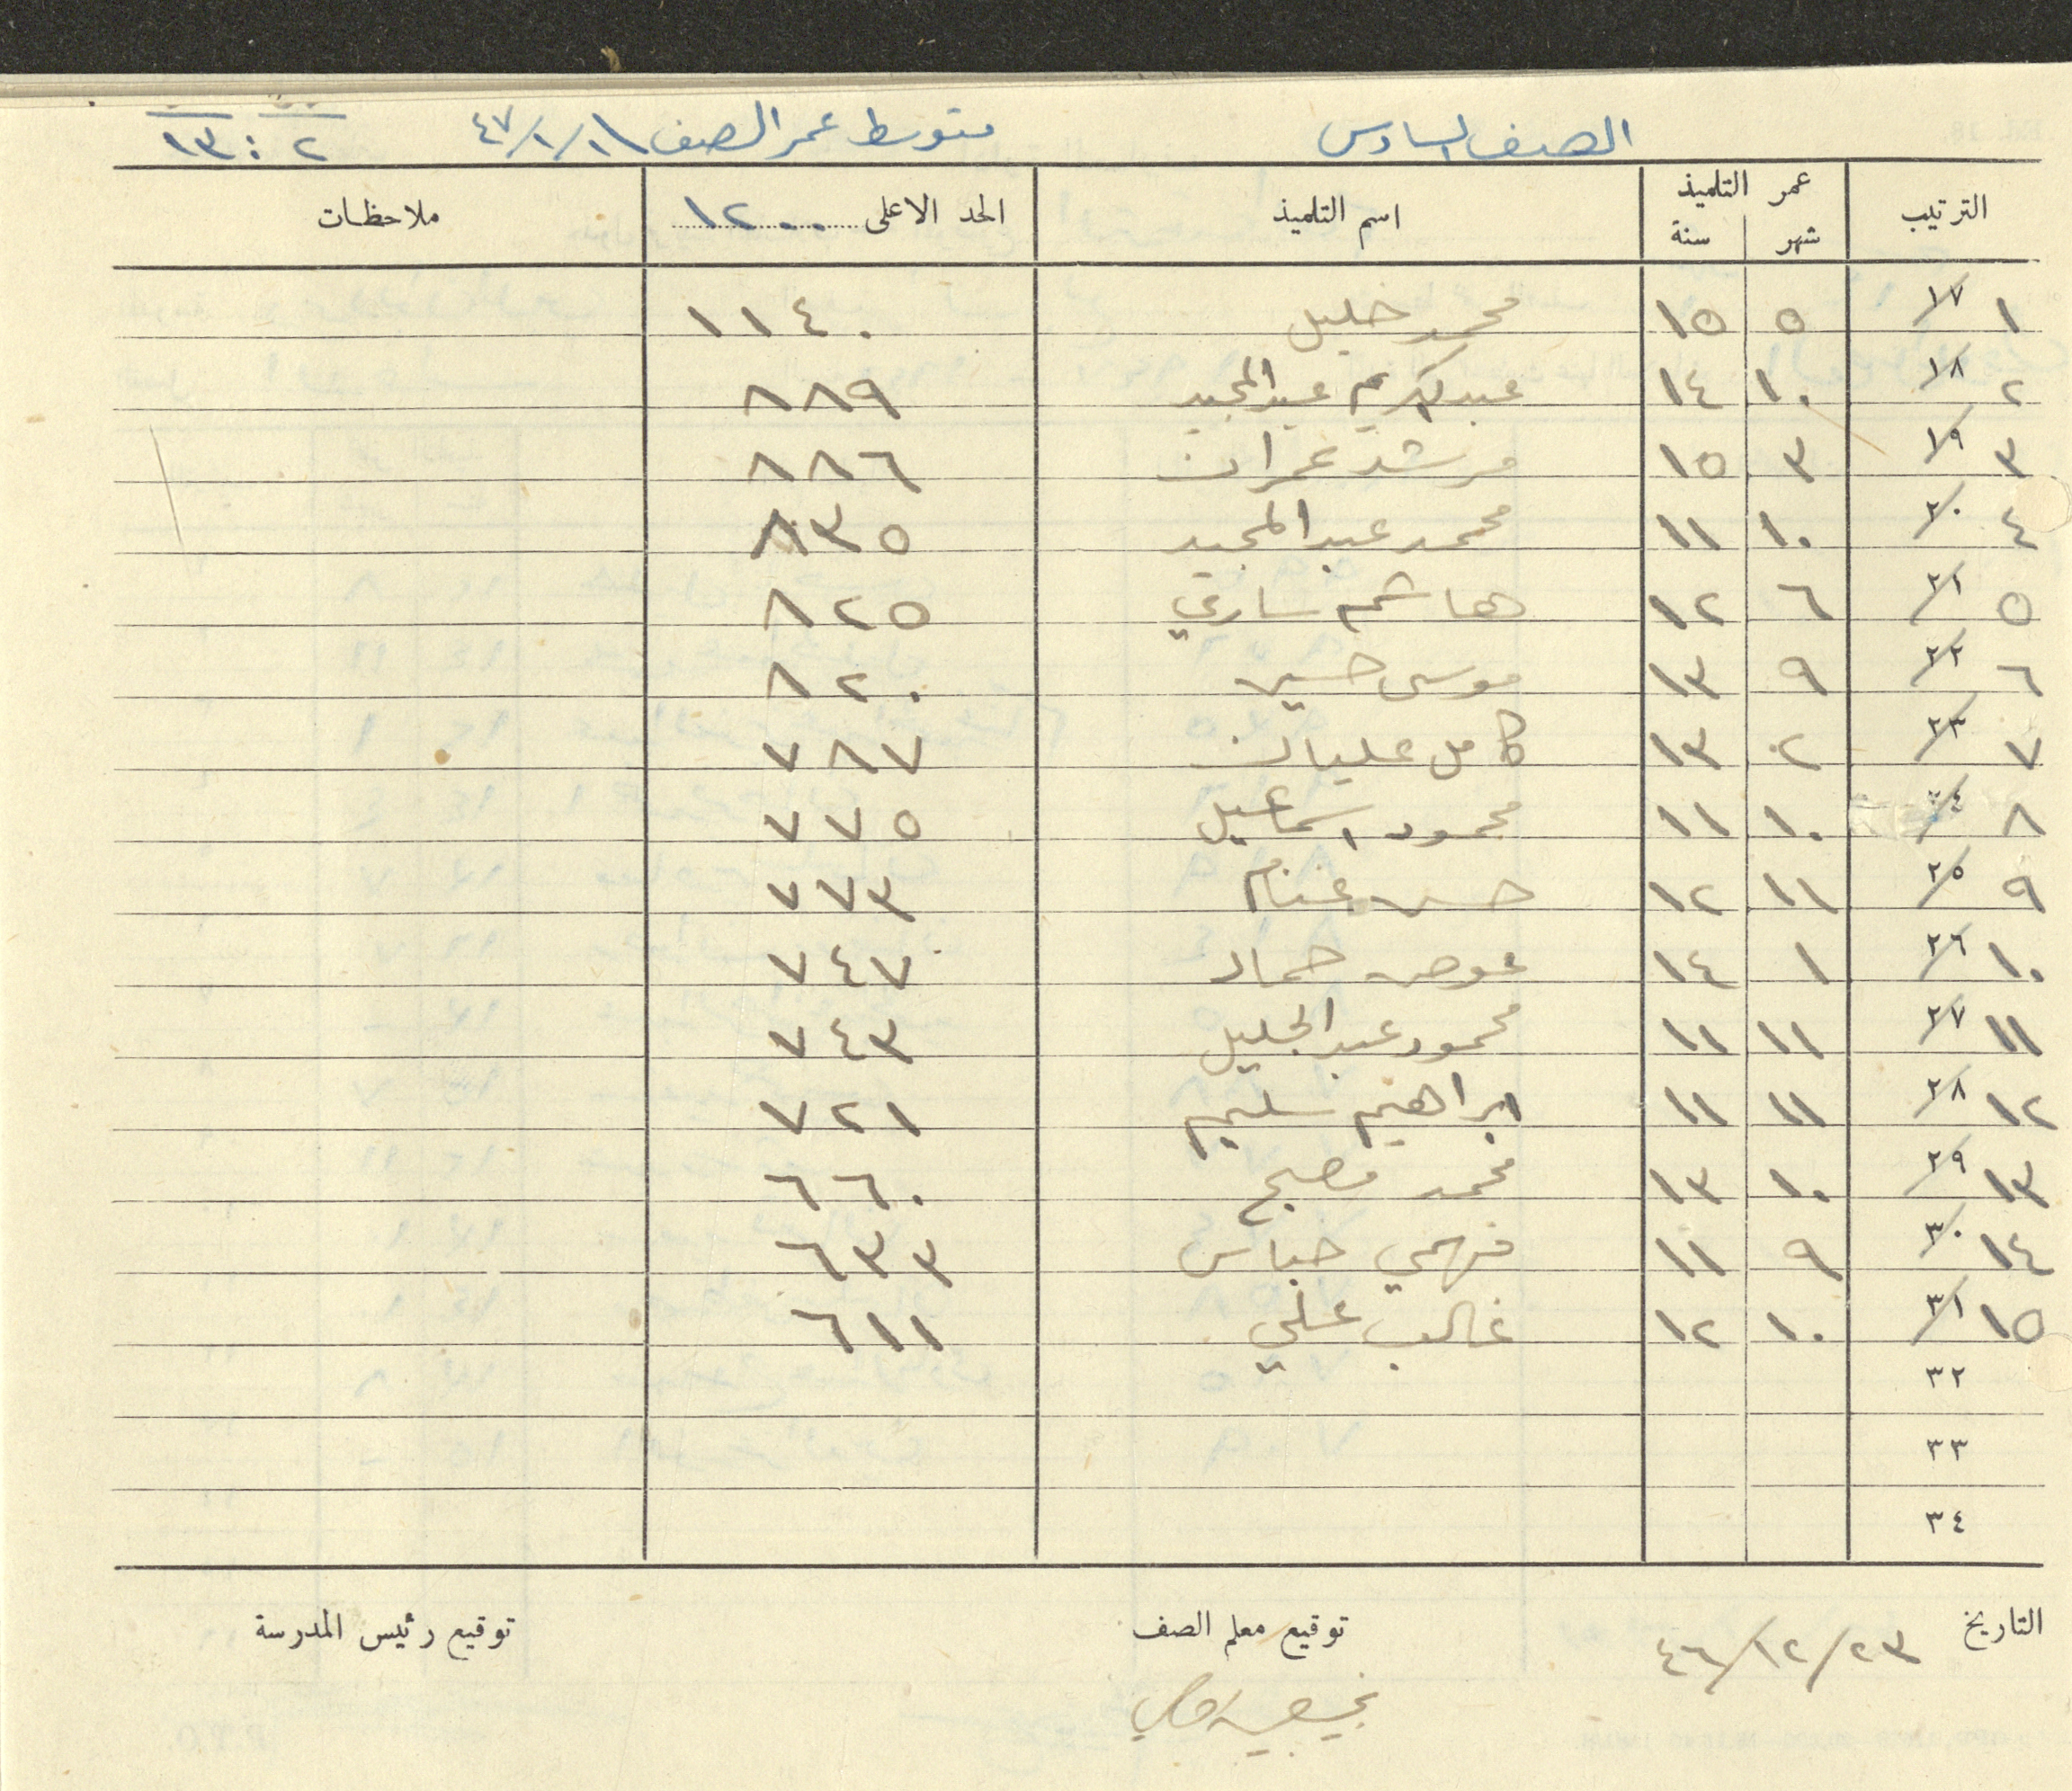 الصف السادس متوسط عمر الصف ١/١/٤٧ ٢ : ١٣
الترتيب عمر التلميذ اسم التلميذ الحد الاعلى ١٢٠٠ ملاحظات
شهر سنة
١ ١٧ ٥ ١٥ محمد خليل ١١٤٠
٢ ١٨ ١٠ ١٤ عبد الكريم عبد المجيد ٨٨٩
٣ ١٩ ٣ ١٥ مرشد عمران ٨٨٦
٤ ٢٠ ١٠ ١١ محمد عبد المجيد ٨٣٥
٥ ٢١ ٦ ١٢ هاشم ساري ٨٢٥
٦ ٢٢ ٩ ١٣ موسى حسين ٨٢٠
٧ ٢٣ ٢ ١٣ كامل عليان ٧٨٧
٨ ٢٤ ١٠ ١١ محمود اسماعيل ٧٧٥
٩ ٢٥ ١١ ١٢ حسن غنام ٧٧٣
١٠ ٢٦ ١ ١٤ عوض حماد ٧٤٧
١١ ٢٧ ١١ ١١ محمود عبد الجليل ٧٤٣
١٢ ٢٨ ١١ ١١ ابراهيم سليم ٧٢١
١٣ ٢٩ ١٠ ١٣ محمد مصبح ٦٦٠
١٤ ٣٠ ٩ ١١ فهمي خباس ٦٣٣
١٥ ٣١ ١٠ ١٢ غالب علي ٦١١
٣٢
٣٣
٣٤
التاريخ ٢٣/١٢/٤٦ توقيع معلم الصف توقيع رئيس المدرسة